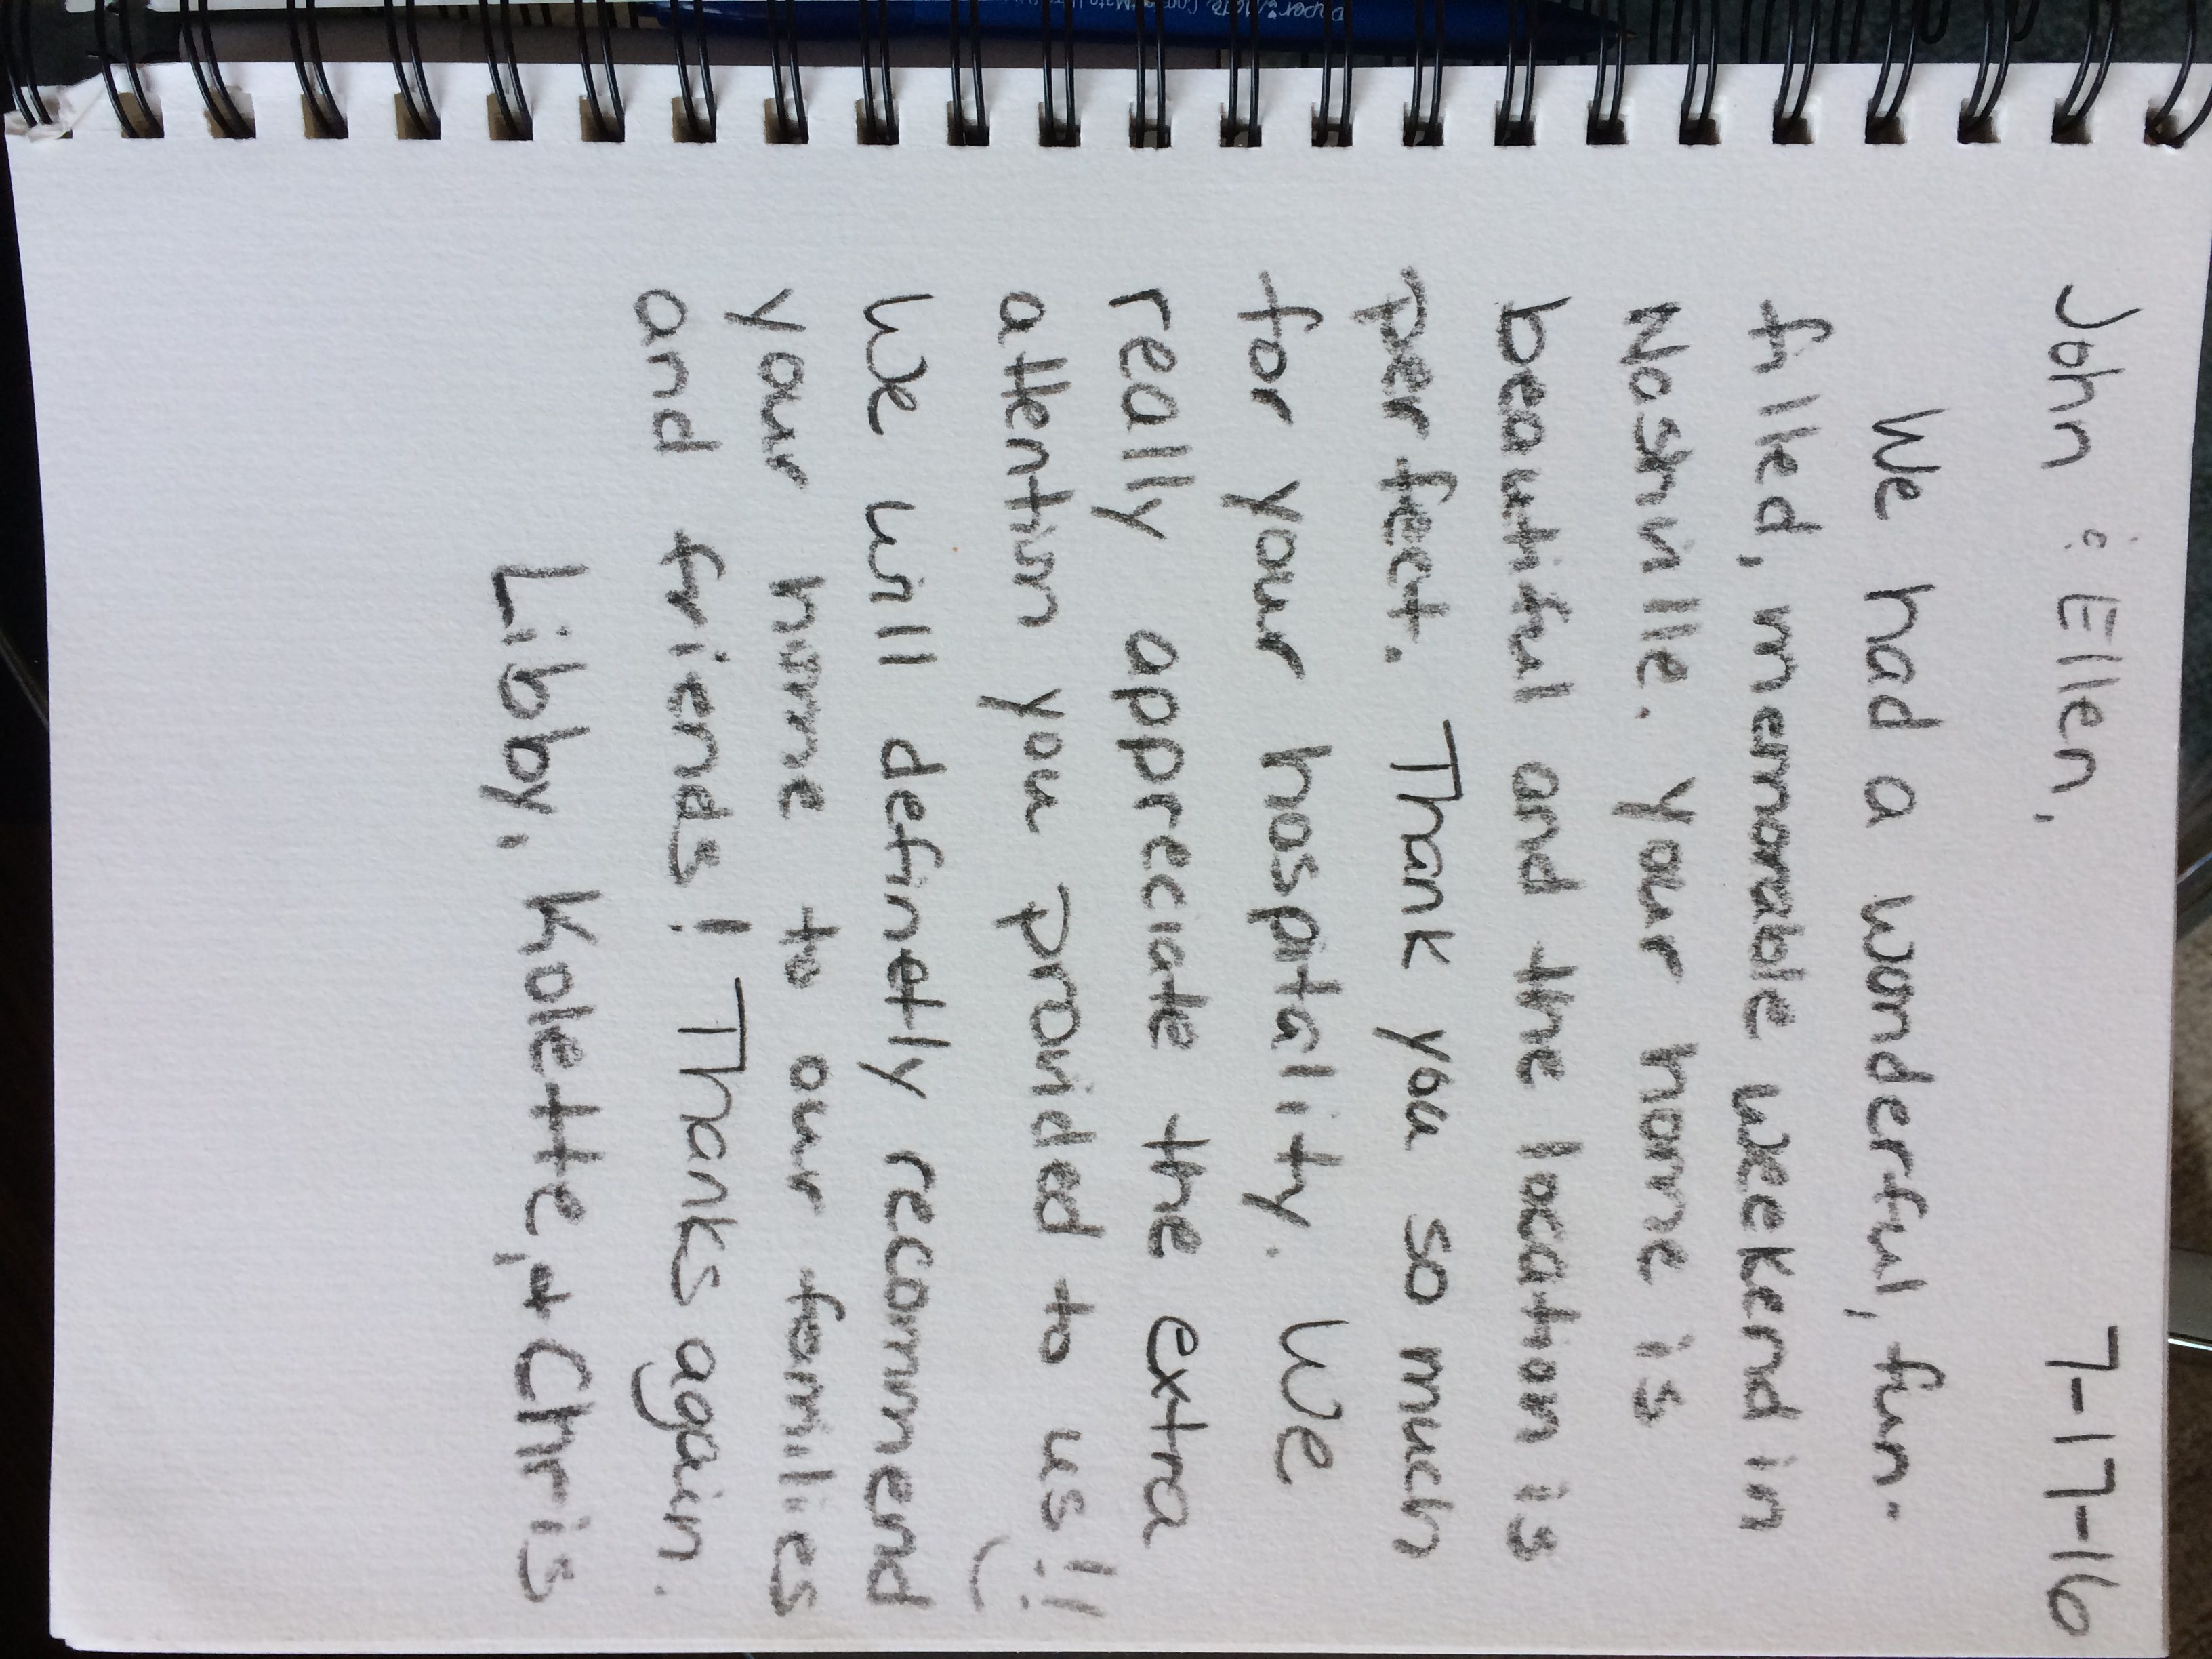 7-17-16
John & Ellen,
We had a wonderful, fun-
filled, memorable weekend in
Nashville. Your home is
beautiful and the location is
perfect. Thank you so much
for your hospitality. We
really appreciate the extra
attention you provided to us!!
We will definetly recommend
your home to our families
and friends! Thanks again.
Libby, Kolette, + Chris